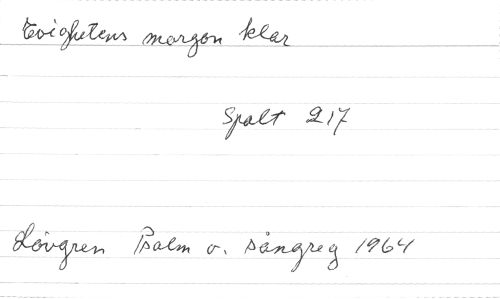 Evighetens morgon klar
Spalt 217
Lövgren Psalm o. sångreg 1964